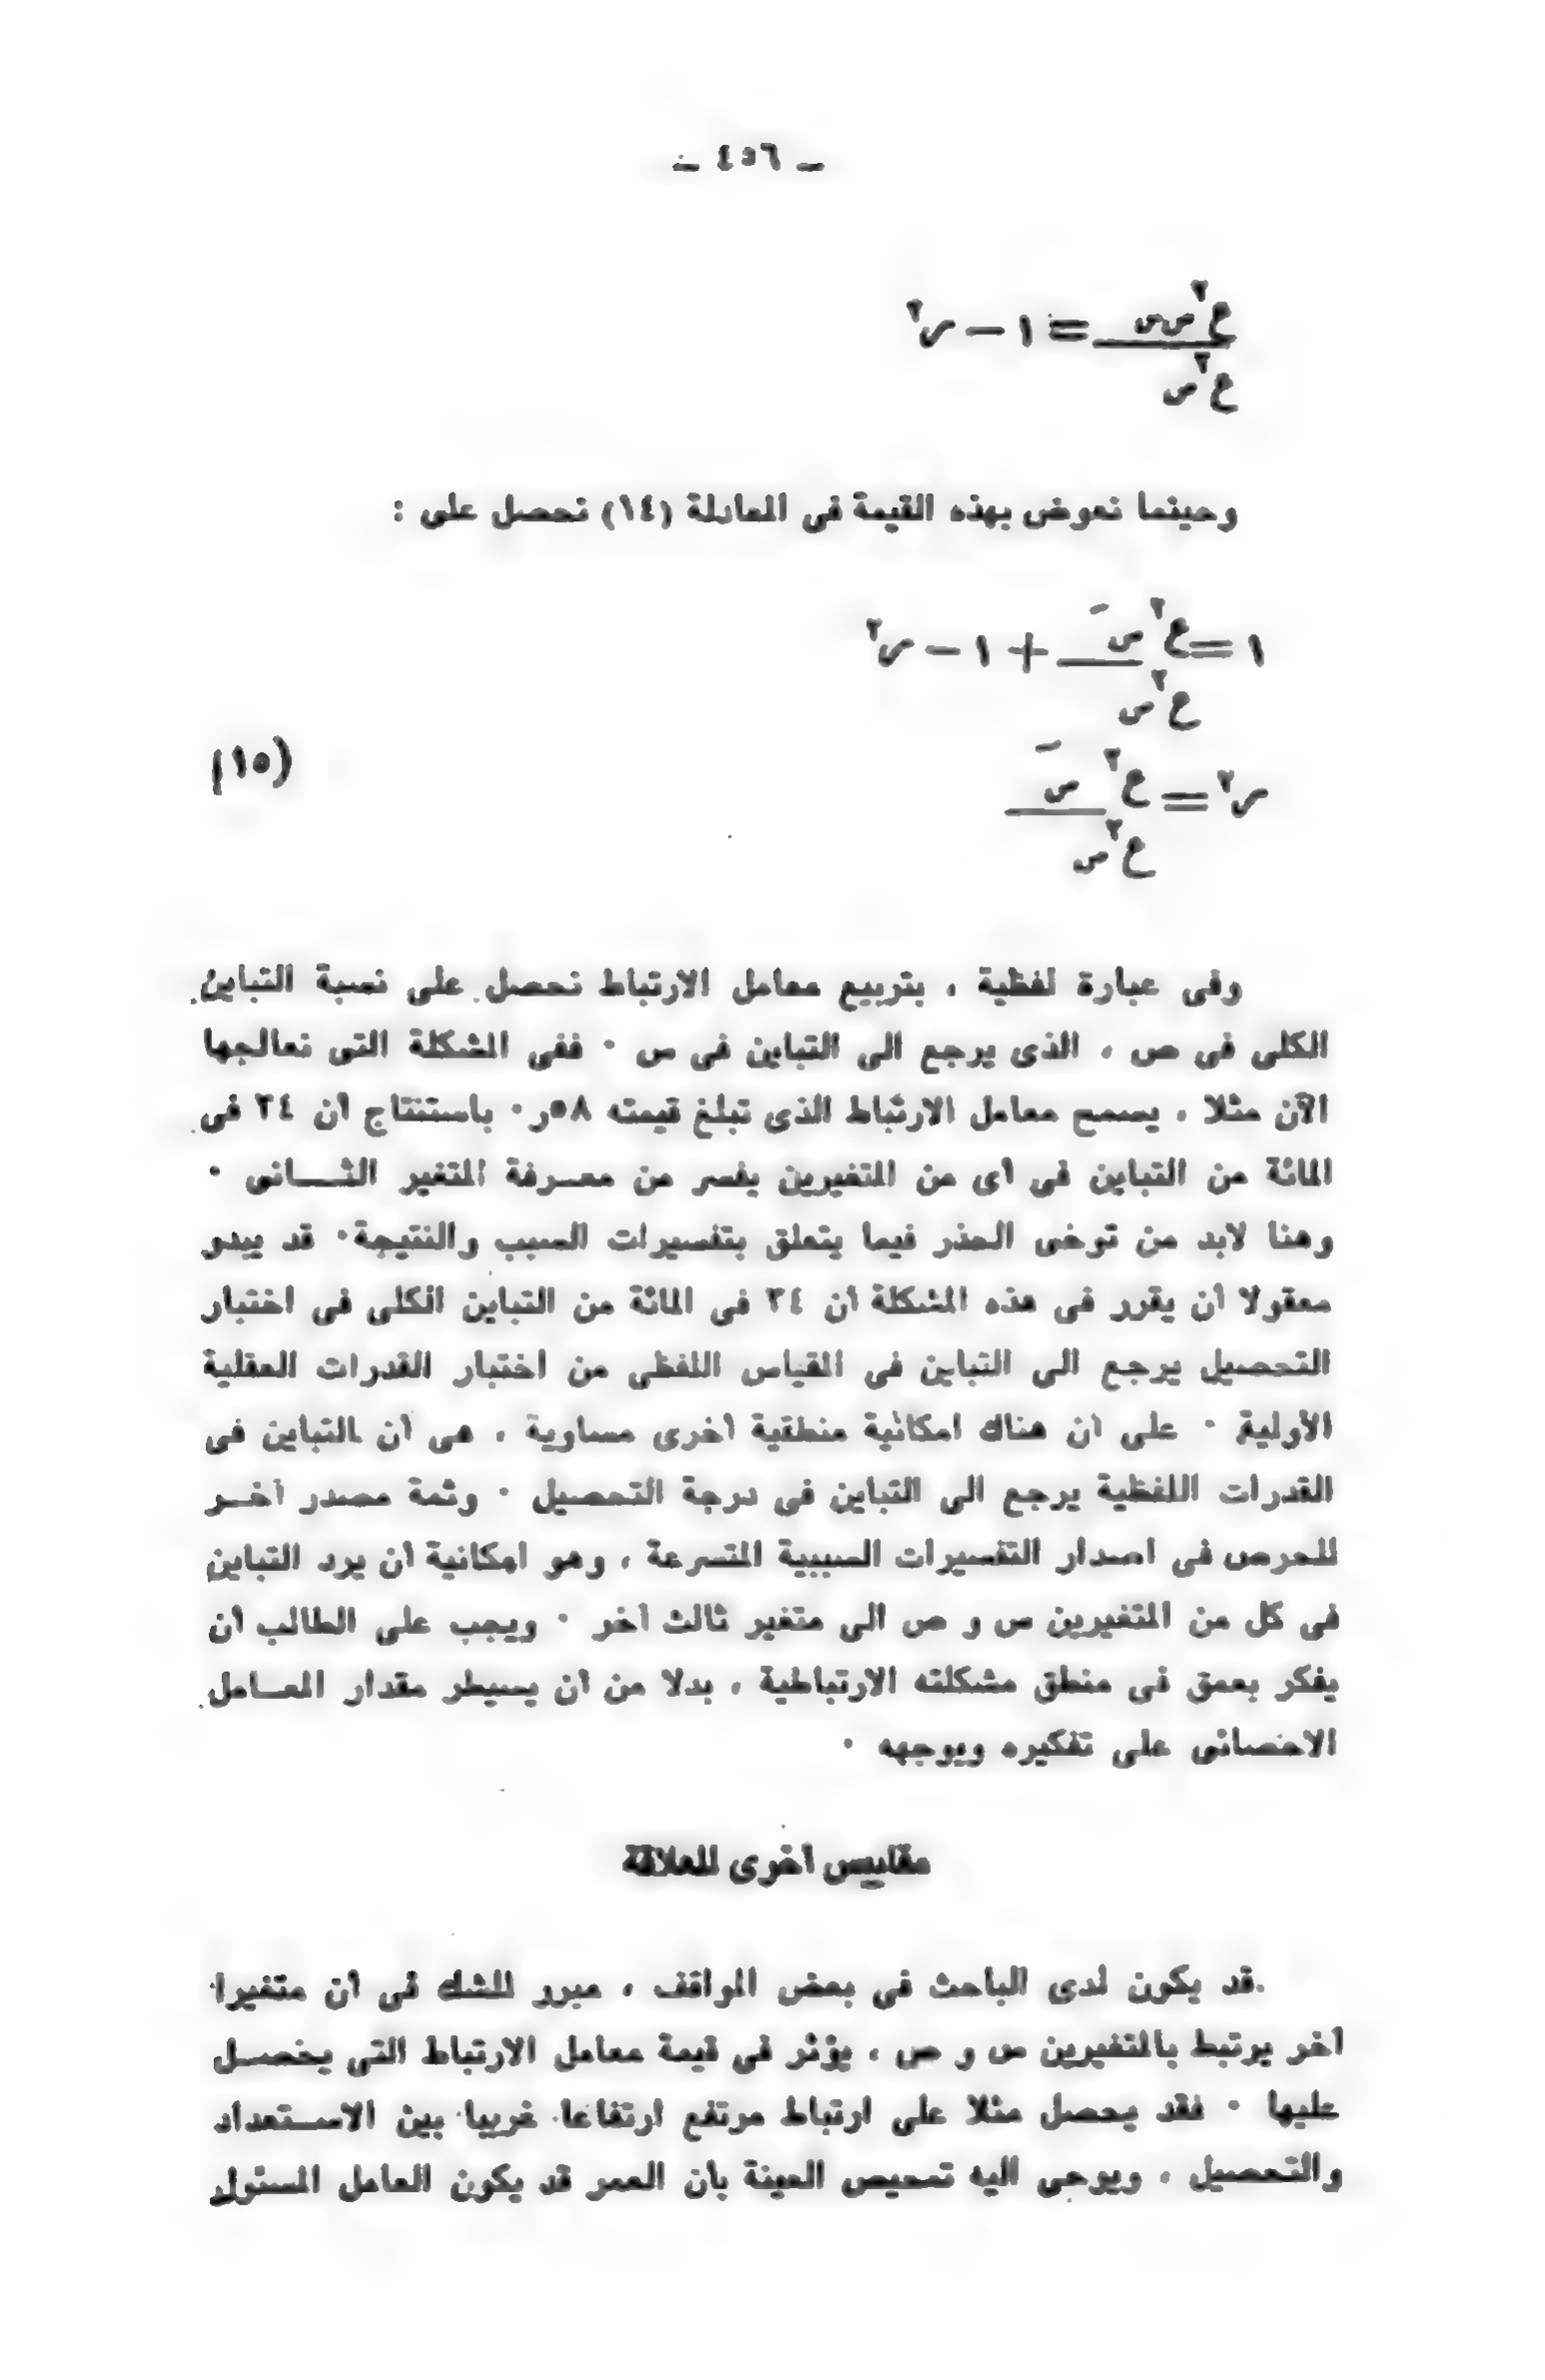 ـ ٤٥٦ ـ
ع٢ س ص / ع٢ ص = ١ − ر٢
وحينما نعوض بهذه القيمة فى المعادلة (١٤) نحصل على :
١ = ع٢ صَ / ع٢ ص + ١ − ر٢
ر٢ = ع٢ صَ / ع٢ ص (١٥)
وفى عبارة لفظية ، بتربيع معامل الارتباط نحصل على نسبة التباين
الكلى فى ص ، الذى يرجع الى التباين فى س ٠ ففى المشكلة التى نعالجها
الآن مثلا ، يسمح معامل الارتباط الذى تبلغ قيمته ٥٨ر٠ باستنتاج أن ٣٤ فى
المائة من التباين فى أى من المتغيرين يفسر من معـرفة المتغير الثــانى ٠
وهنا لابد من توخى الحذر فيما يتعلق بتفسيرات السبب والنتيجة٠ قد يبدو
معقولا أن يقرر فى هذه المشكلة أن ٣٤ فى المائة من التباين الكلى فى اختبار
التحصيل يرجع الى التباين فى المقياس اللفظى من اختبار القدرات العقلية
الأولية ٠ على أن هناك امكانية منطقية أخرى مساوية ، هى أن التباين فى
القدرات اللفظية يرجع الى التباين فى درجة التحصيل ٠ وثمة مصدر آخـر
للحرص فى اصدار التفسيرات السببية المتسرعة ، وهو امكانية أن يرد التباين
فى كل من المتغيرين س و ص الى متغير ثالث آخر ٠ ويجب على الطالب أن
يفكر بعمق فى منطق مشكلته الارتباطية ، بدلا من أن يسيطر مقدار المعـامل
الاحصائى على تفكيره ويوجهه ٠
مقاييس أخرى للعلاقة
قد يكون لدى الباحث فى بعض المواقف ، مبرر للشك فى أن متغيرا
آخر يرتبط بالمتغيرين س و ص ، يؤثر فى قيمة معامل الارتباط التى يحصـل
عليها ٠ فقد يحصل مثلا على ارتباط مرتفع ارتفاعا غريبا بين الاسـتعداد
والتحصيل ، ويوحى اليه تمحيص العينة بأن العمر قد يكون العامل المسئول